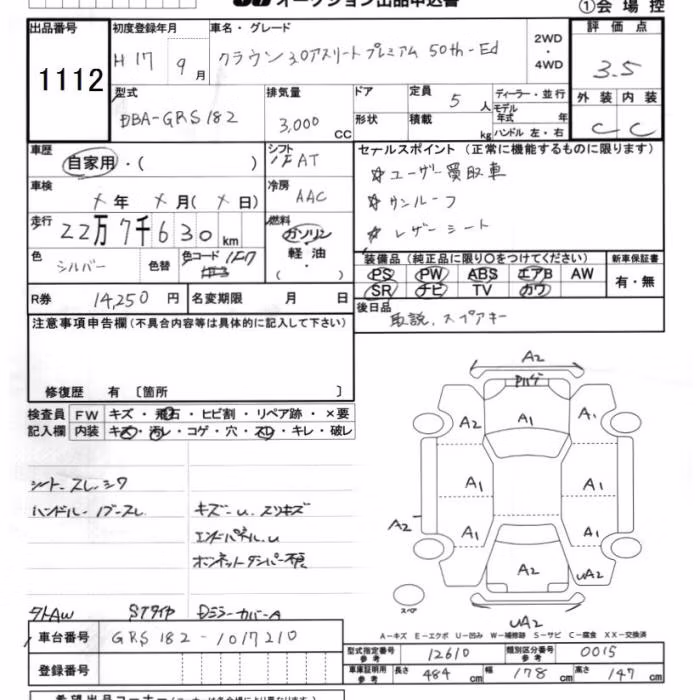 オークション出品申込書
①会場控
出品番号
1112
初度登録年月
H17 9月
車名・グレード
クラウン 3.0アスリートプレミアム 50th-Ed
2WD
・
4WD
評価点
3.5
型式
DBA-GRS182
排気量
3,000 CC
ドア
形状
定員 5 人
積載 kg
ディーラー・並行
モデル年式 年
ハンドル 左・右
外装 内装
C C
車歴
自家用・( )
シフト
FAT
セールスポイント(正常に機能するものに限ります)
☆ユーザー買取車
☆サンルーフ
☆レザーシート
車検
×年 ×月(×日)
冷房
AAC
走行
22万7千630km
燃料
ガソリン
軽油
( )
色
シルバー
色替
色コード 1F7
R券 14,250円
名変期限 月 日
装備品(純正品に限り○をつけてください)
PS PW ABS エアB AW
SR ナビ TV カワ
新車保証書
有・無
後日品
取説、スペアキー
注意事項申告欄(不具合内容等は具体的に記入して下さい)
修復歴 有 〔箇所 〕
検査員 FW キズ・飛石・ヒビ割・リペア跡・×要
記入欄 内装 キズ・汚レ・コゲ・穴・スレ・キレ・破レ
シート-スレ.シワ
キズ-U.スリキズ
エンドパネル.U
ボンネットダンパー不良
社外AW
Dミラーカバー-A
A2
A2 A1 A1
A1 A1
A2 A1 A1
A2 UA2
UA2
スペア
A-キズ E-エクボ U-凹み W-補修跡 S-サビ C-腐食 XX-交換済
車台番号 GRS182-1017210
登録番号
型式指定番号参考 12610
類別区分番号参考 0015
車庫証明用参考 長さ 484cm 幅 178cm 高さ 147cm